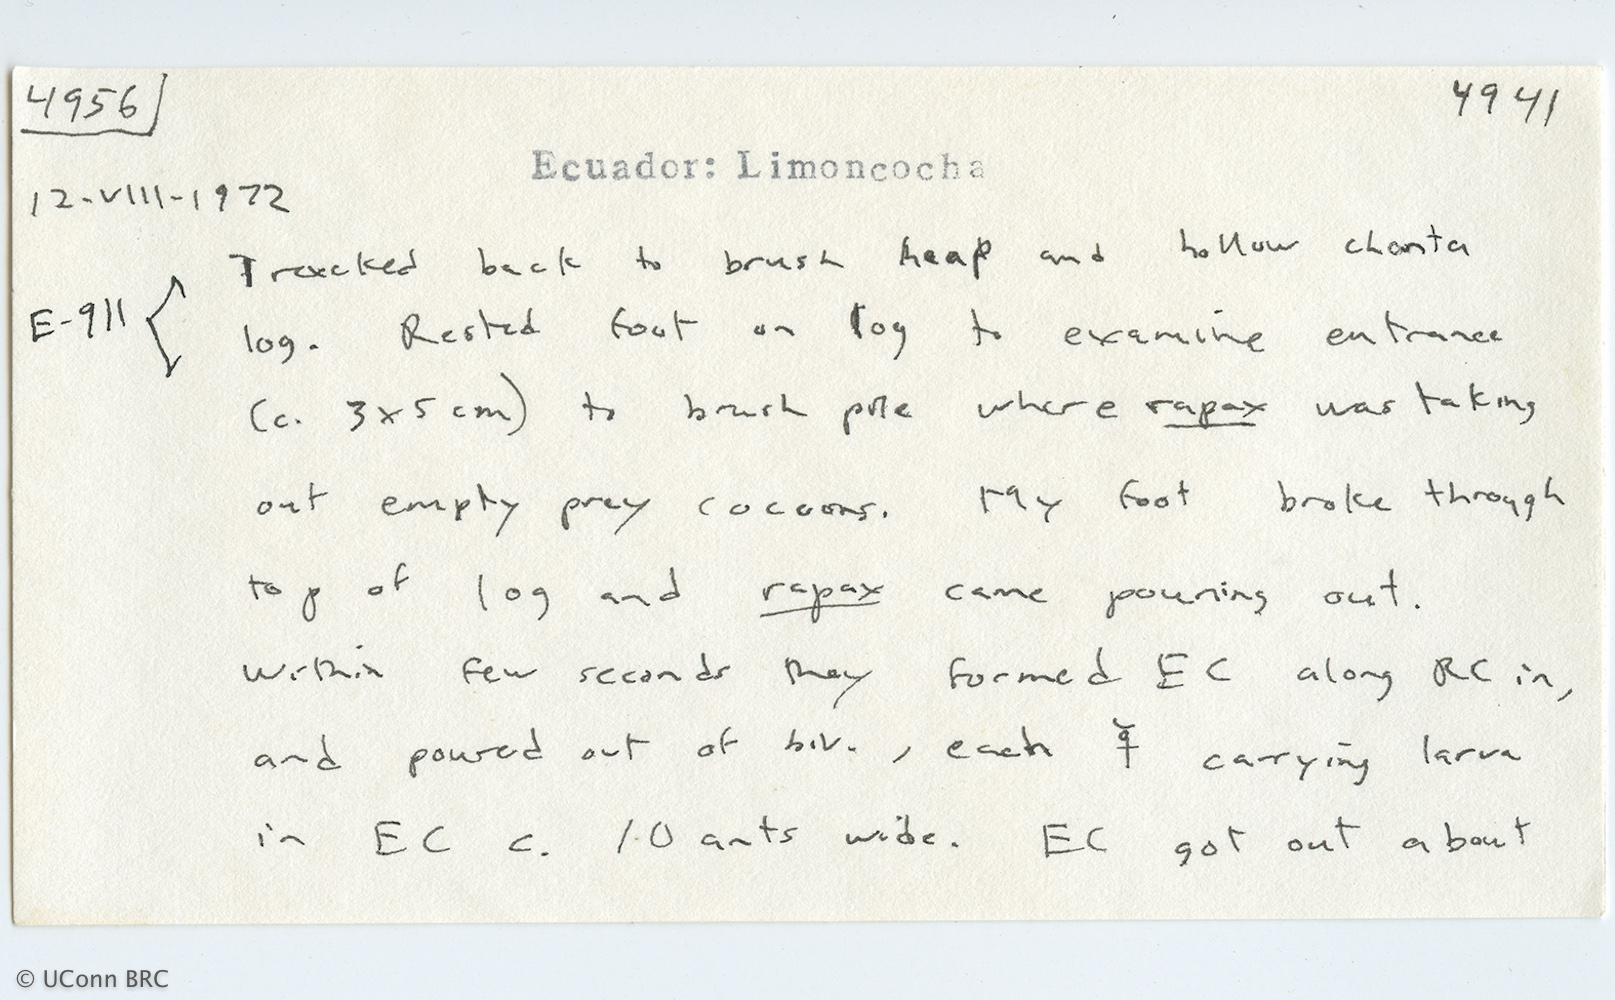 4956
4941
Ecuador: Limoncocha
12-VIII-1972
E-911
Tracked back to brush heap and hollow chonta
log. Rested foot on log to examine entrance
(c. 3x5 cm) to brush pile where rapax was taking
out empty prey cocoons. My foot broke through
top of log and rapax came pouring out.
Within few seconds they formed EC along RC in,
and poured out of biv., each ☿ carrying larva
in EC c. 10 ants wide. EC got out about
© UConn BRC